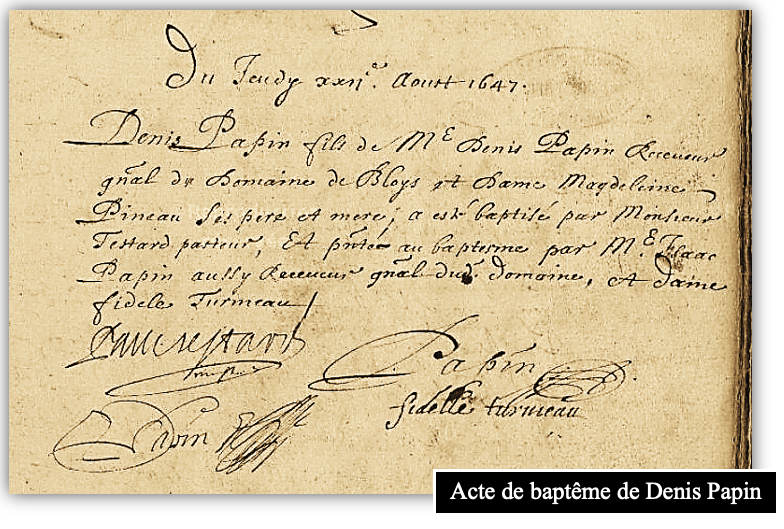 Du Jeudy xxii.e Aoust 1647.
Denis Papin fils de M.E Denis Papin Receveur
gñal du Domaine de Bloys et Dame Magdeleine
Pineau ses pere et mere; a esté baptisé par Monsieur
Testard pasteur, Et pñté au baptesme par M.E Isaac
Papin aussy Receveur gñal dud. Domaine, et dame
fidele Turmeau
Paul Testard
Papin
fidelle turmeau
Papin
Acte de baptême de Denis Papin